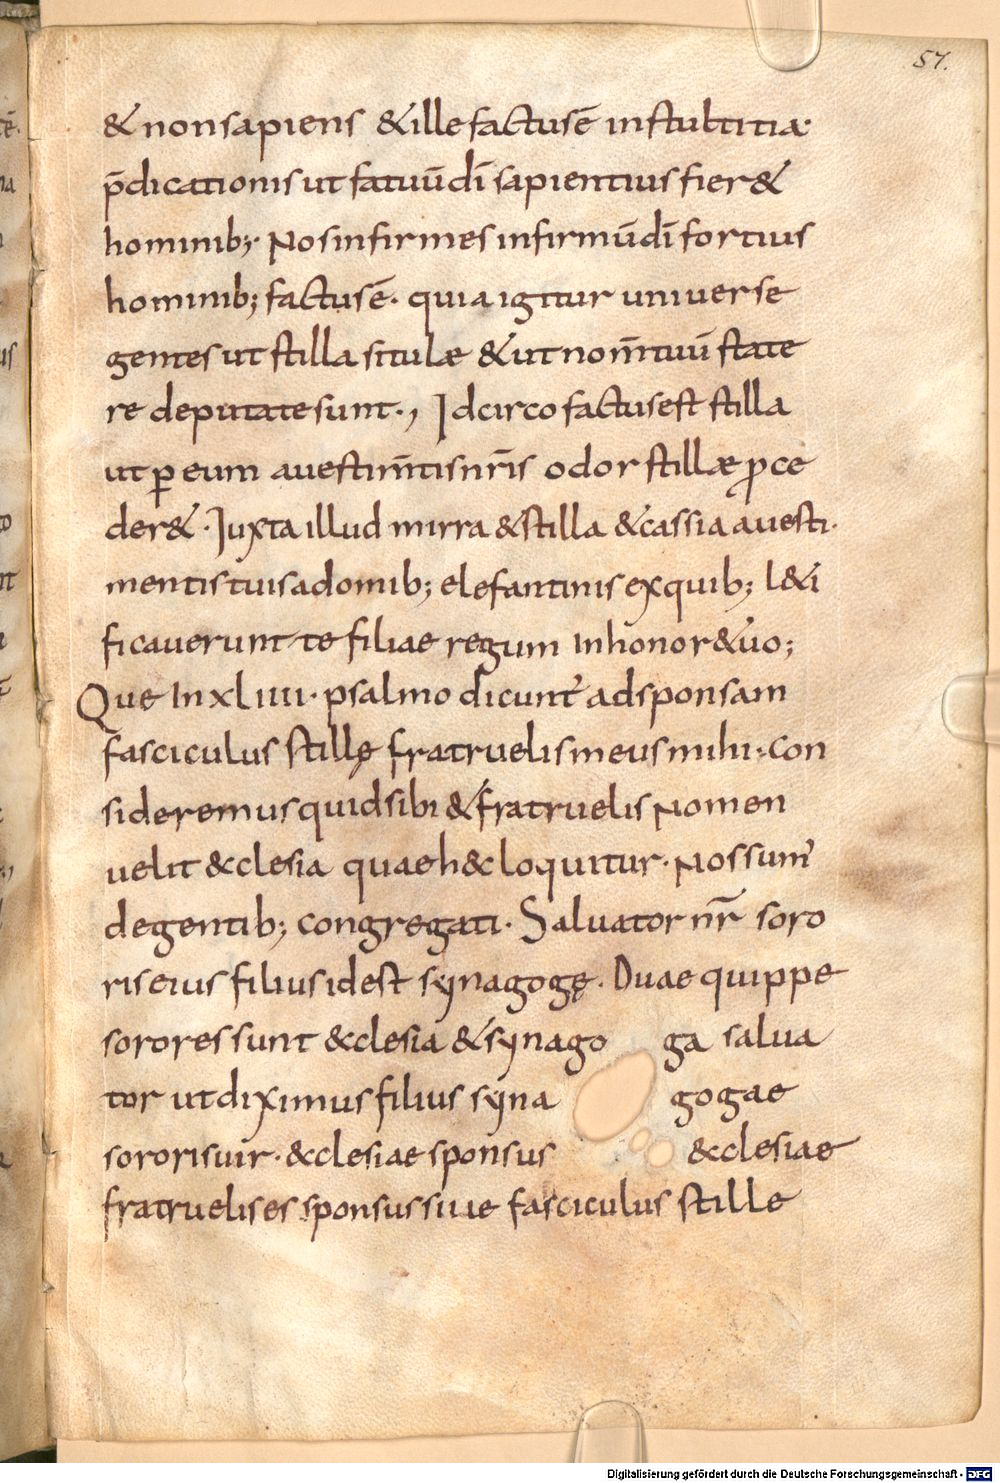 57.
& non sapiens & ille factus ē in stultitia
p̄dicationis ut fatuū dī sapientius fier&
hominib; Nos infirmes infirmū dī fortius
hominib; factus ē. quia igitur universe
gentes ut stilla situlæ & ut nom̄tuū state
re deputate sunt., Idcirco factus est stilla
ut ꝑ eum a vestim̄tis nr̄is odor stillæ ꝓce
der&. Juxta illud mirra & stilla & cassia a vesti
mentis tuis a domib; elefantinis ex quib; l&i
ficaverunt te filiae regum In honor& uo;
Que In xLIIII. psalmo dicunt' ad sponsam
fasciculus stillę fratruelis meus mihi. con
sideremus quid sibi & fratruelis Nomen
uelit &clesia quae h&c loquitur. Nos sum'
de gentib; congregati. Salvator nr̄ soro
ris eius filius id est synagogę. Duae quippe
sorores sunt &clesia & synago ga salua
tor ut diximus filius syna gogae
sororis uir. &clesiae sponsus &clesiae
fratruelis es sponsus siue fasciculus stille
Digitalisierung gefördert durch die Deutsche Forschungsgemeinschaft - DFG